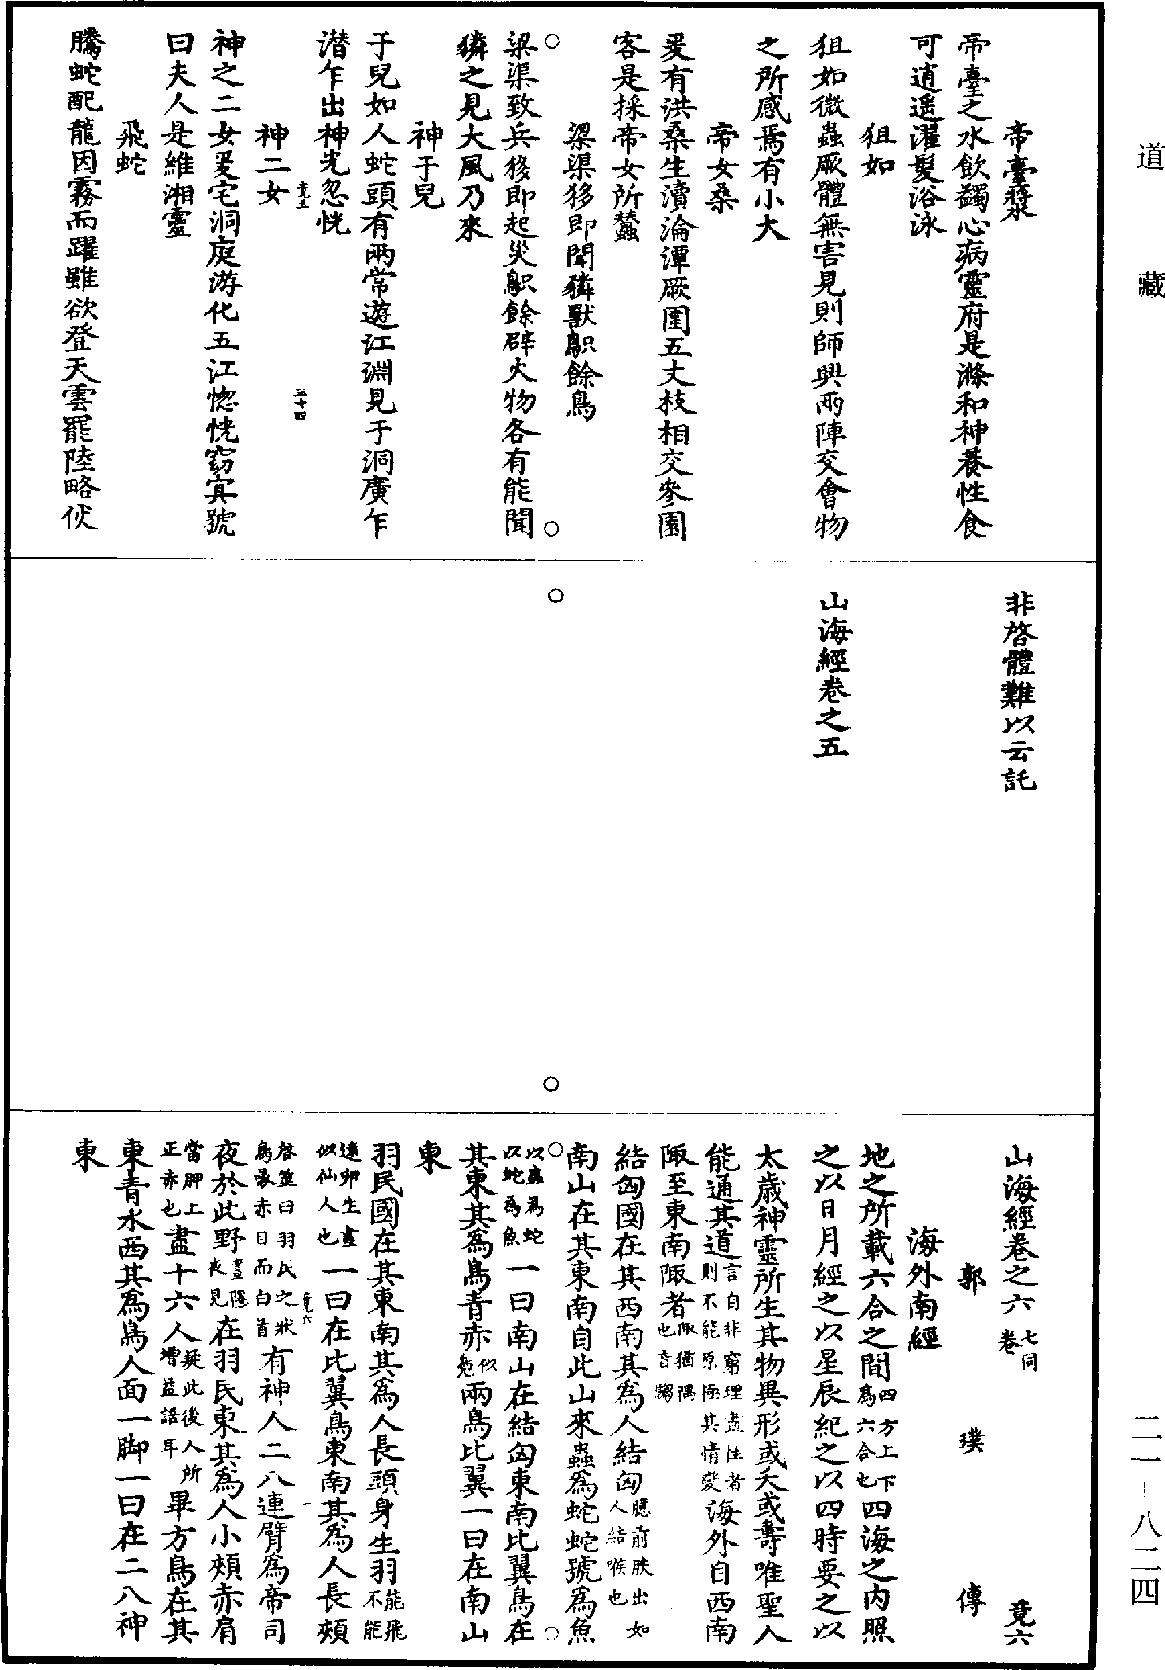 道藏
帝臺漿
帝臺之水飲蠲心病靈府是滌和神養性食
可逍遥濯髮浴泳
狙如
狙如微蟲厥體無害見則師興兩陣交會物
之所感焉有小大
帝女桑
爰有洪桑生瀆淪潭厥圍五丈枝相交參園
客是採帝女所蠶
梁渠移即聞獜獸鴃餘鳥
梁渠致兵移即起災鴃餘辟火物各有能聞
獜之見大風乃來
神于兒
于兒如人蛇頭有兩常遊江淵見于洞廣乍
潜乍出神光忽恍
神二女
五十四
神之二女爰宅洞庭游化五江惚恍窈㝠號
曰夫人是維湘靈
飛蛇
騰蛇配龍因霧而躍雖欲登天雲罷陸略伏
非啓體難以云託
山海經卷之五
山海經卷之六 七同卷 竟六
郭璞傳
海外南經
地之所載六合之間四方上下爲六合也四海之内照
之以日月經之以星辰紀之以四時要之以
太歲神靈所生其物異形或夭或壽唯聖人
能通其道言自非窮理盡性者則不能原極其情變海外自西南
陬至東南陬者陬猶隅也音鄒
結匈國在其西南其爲人結匈臆前胅出如人結喉也
南山在其東南自此山來蟲爲蛇蛇號爲魚
以蟲爲蛇以蛇爲魚一曰南山在結匈東南比翼鳥在
其東其爲鳥青赤似鳬兩鳥比翼一曰在南山
東
羽民國在其東南其爲人長頭身生羽能飛不能
遠卵生畫似仙人也一曰在比翼鳥東南其爲人長頰
竟六
啓筮曰羽民之狀鳥喙赤目而白首有神人二八連臂爲帝司
夜於此野晝隱夜見在羽民東其爲人小頰赤肩
當胛上正赤也盡十六人疑此後人所增益語耳畢方鳥在其
東青水西其爲鳥人面一脚一曰在二八神
東
二一－八二四